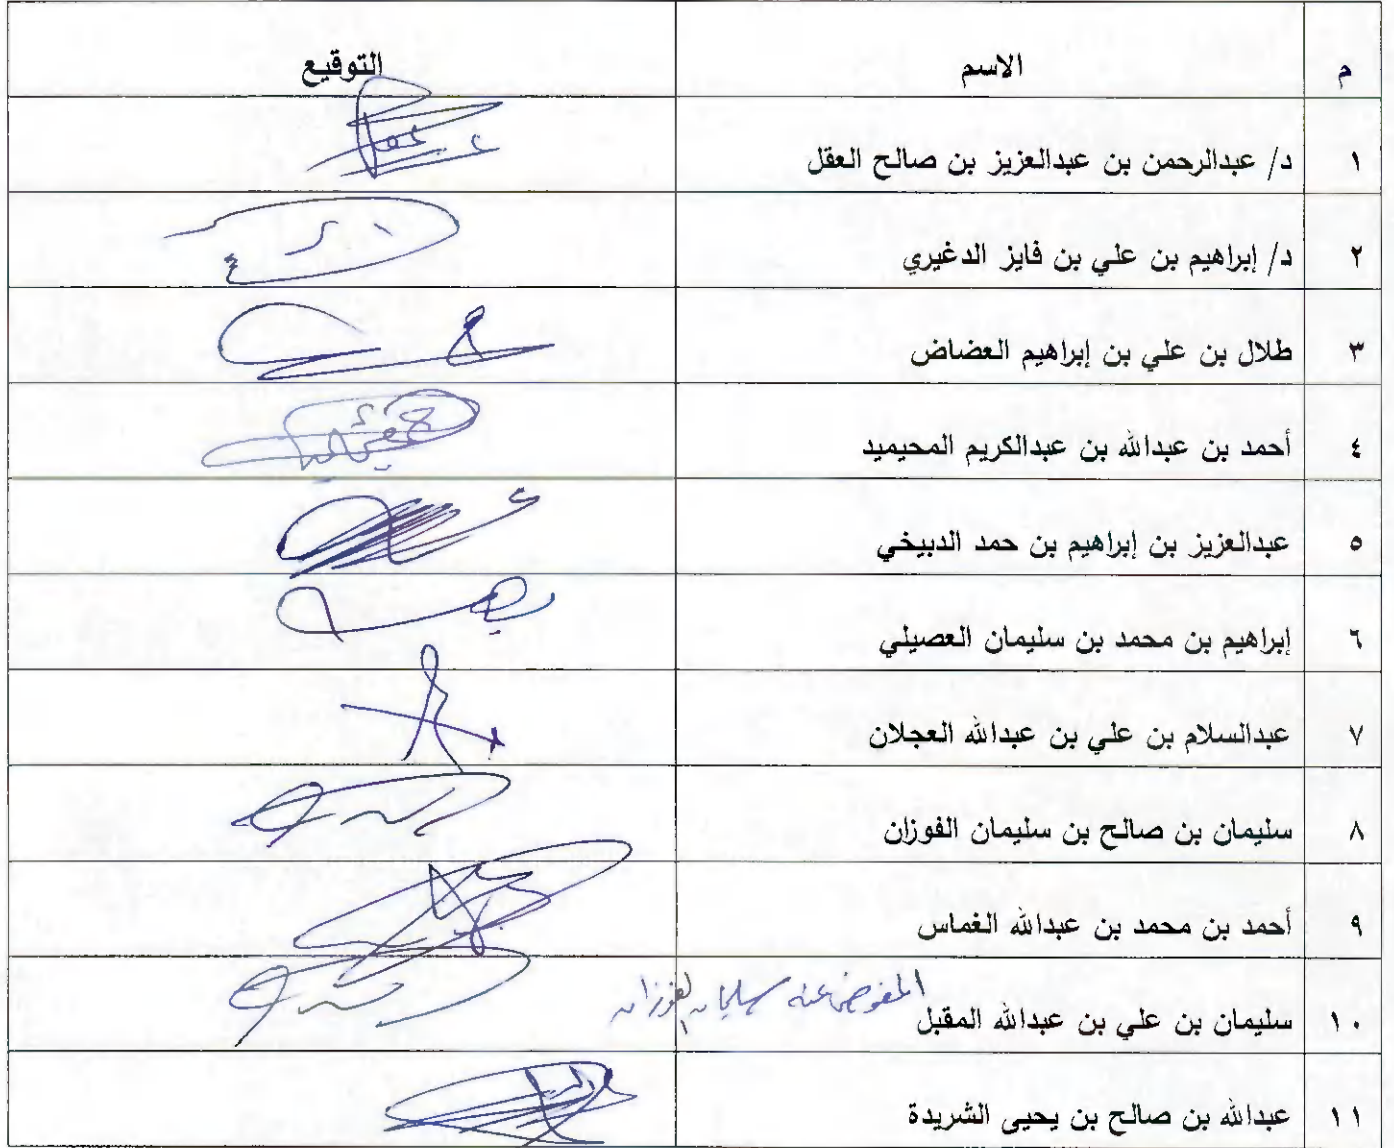 م الاسم التوقيع
١ د/ عبدالرحمن بن عبدالعزيز بن صالح العقل
٢ د/ إبراهيم بن علي بن فايز الدغيري
٣ طلال بن علي بن إبراهيم العضاض
٤ أحمد بن عبدالله بن عبدالكريم المحيميد
٥ عبدالعزيز بن إبراهيم بن حمد الدبيخي
٦ إبراهيم بن محمد بن سليمان العصيلي
٧ عبدالسلام بن علي بن عبدالله العجلان
٨ سليمان بن صالح بن سليمان الفوزان
٩ أحمد بن محمد بن عبدالله الغماس
المفوض عنه سليمان الفوزان
١٠ سليمان بن علي بن عبدالله المقبل
١١ عبدالله بن صالح بن يحيى الشريدة